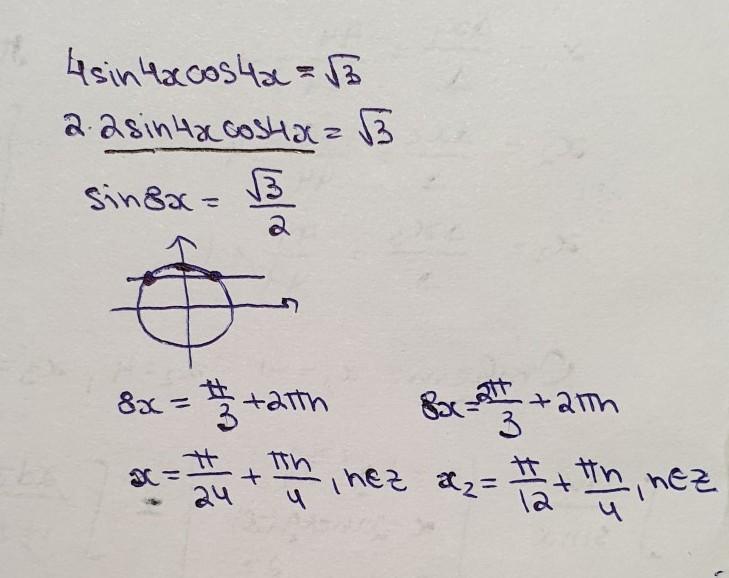 4sin4xcos4x = √3
2·2sin4xcos4x = √3
sin8x = √3/2
8x = π/3 + 2πn    8x = 2π/3 + 2πn
x = π/24 + πn/4, n∈Z    x₂ = π/12 + πn/4, n∈Z